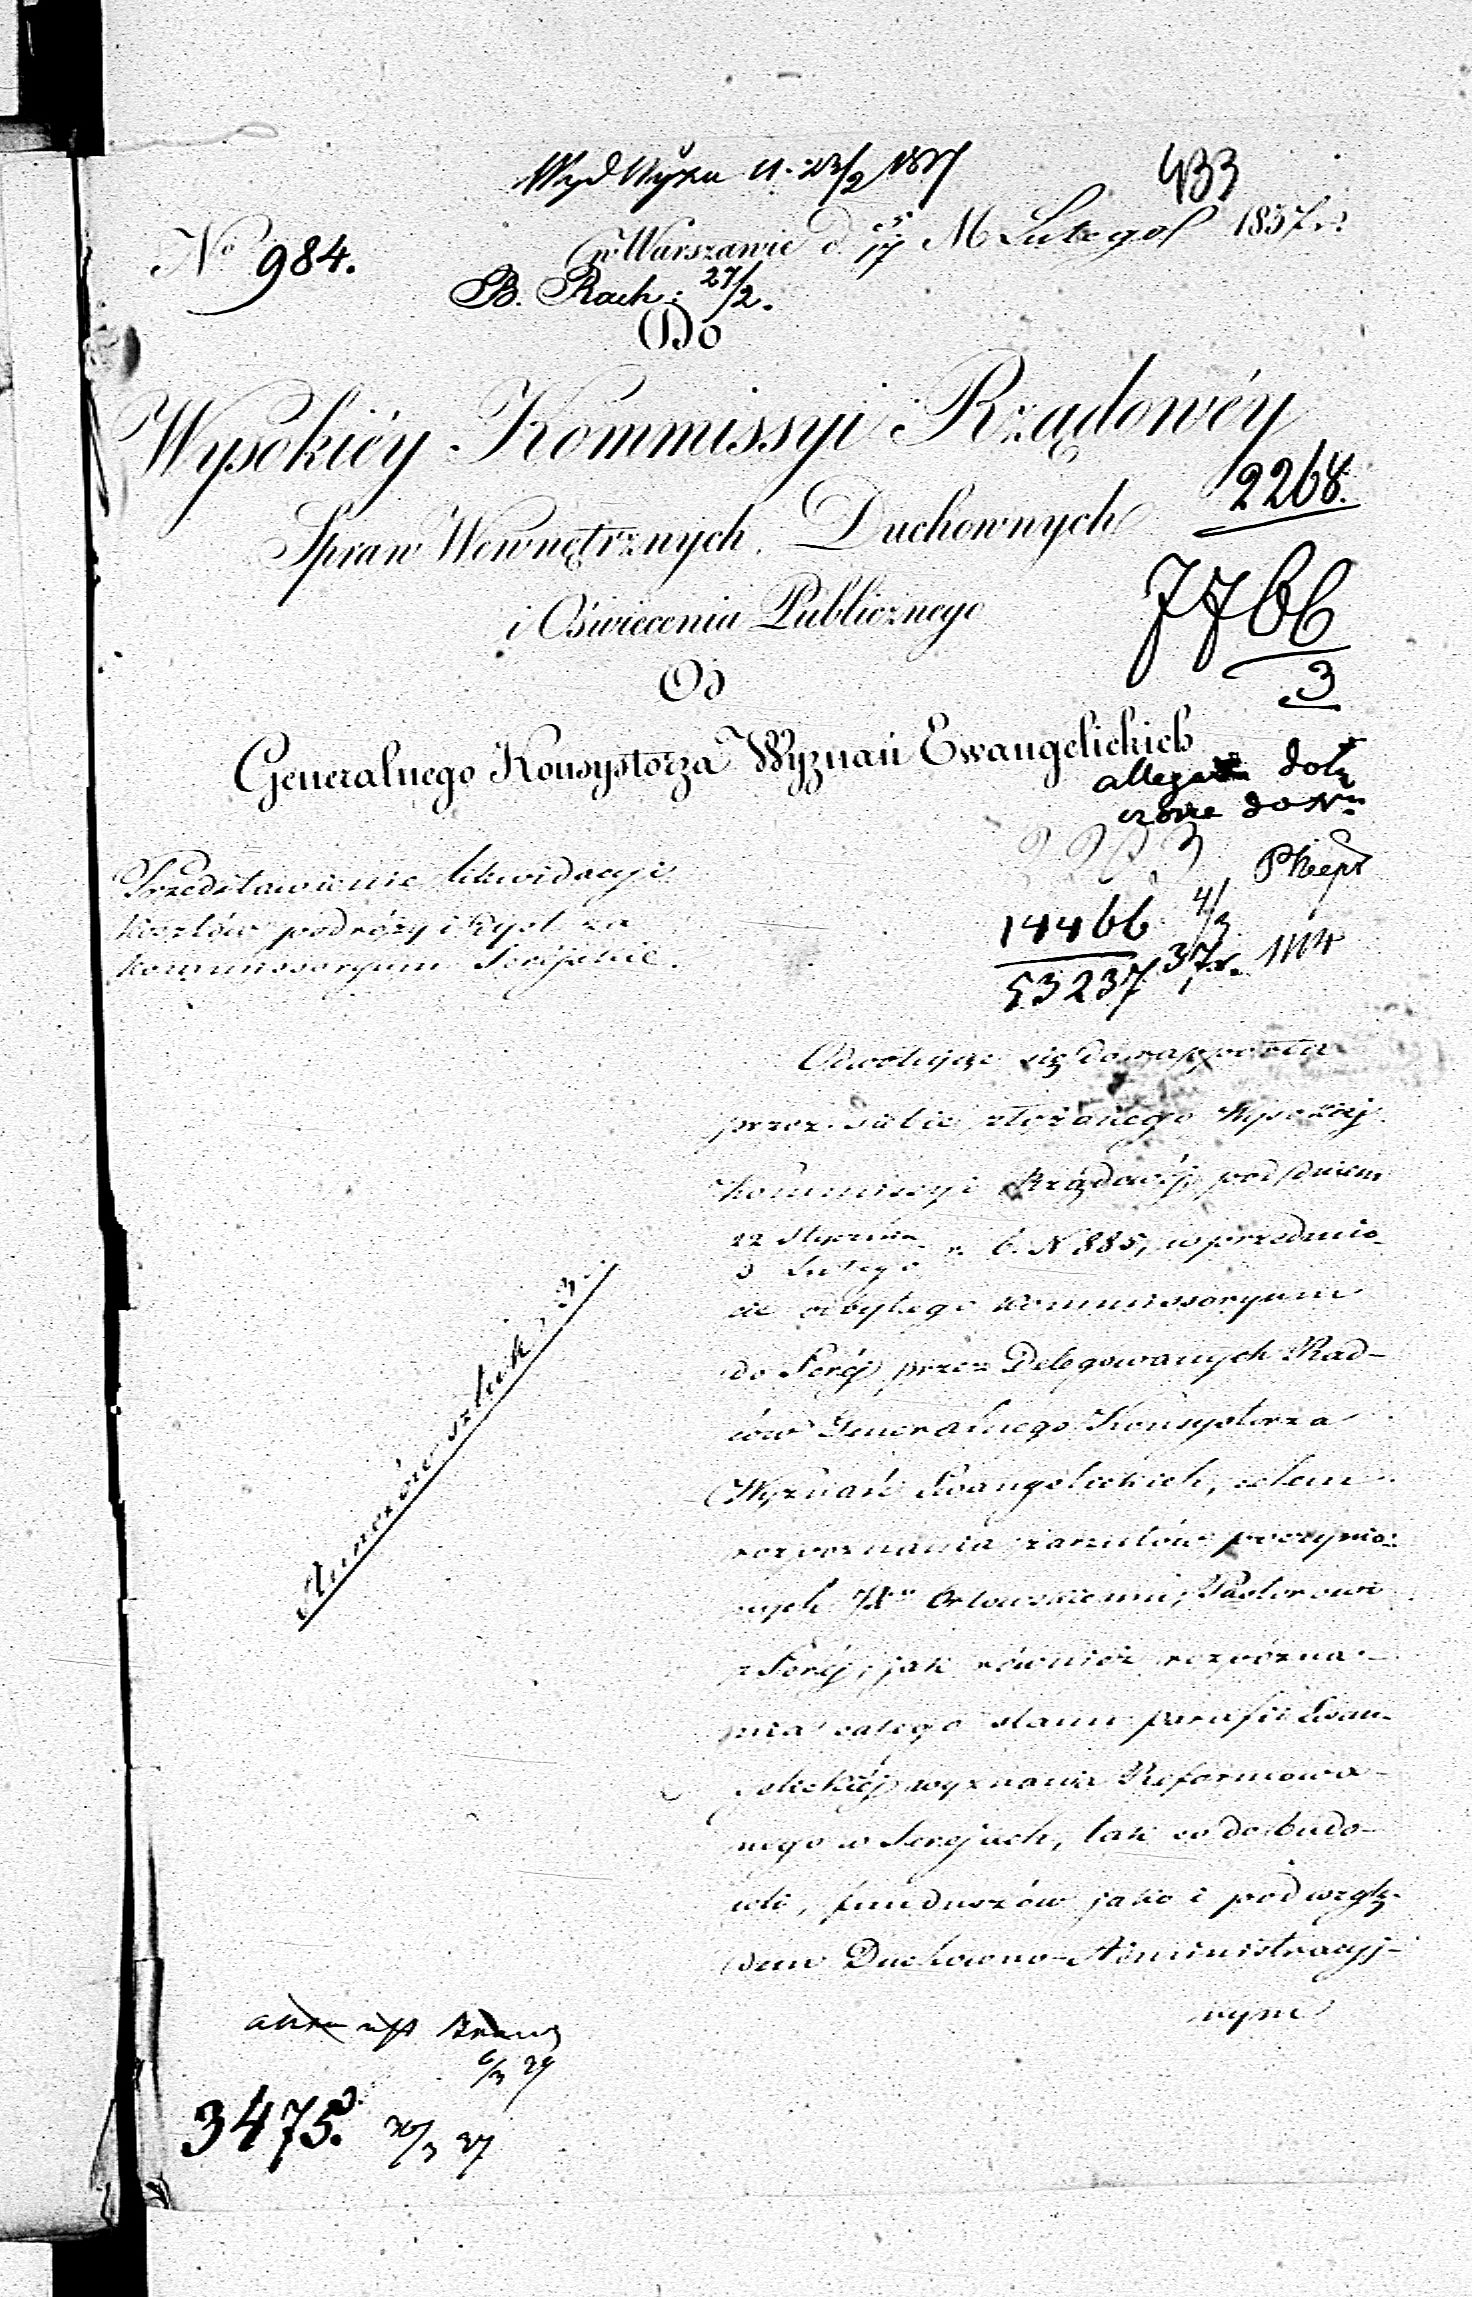 Wyd Wyzn d. 23/2 1837
433
No 984.
w Warszawie d. 5/17 M Lutego 1837 r.
B. Rach: 27/2.
Do
Wysokiéy Kommissyi Rządowéy
2268.
Spraw Wewnętrznych, Duchownych
i Oświecenia Publicznego
7766
3
Od
Generalnego Konsystorza Wyznań Ewangelickich
allegata dołą
czone do Nru
Przedstawienie likwidacyi
kosztów podróży i dyet za
kommissoryum Serejskie.
14466 4/3
53237 37 r.
Odwołując się do rapportu
przez siebie złożonego Wysokiej
Kommissyi Rządowéj pod dniem
22 Stycznia
3 Lutego r. b. N 885, w przedmio-
cie odbytego kommissoryum
do Seréj przez Delegowanych Rad-
ców Generalnego Konsystorza
Wyznań Ewangelickich, celem
rozpoznania zarzutów poczynio-
nych JXu Orłowskiemu, Pastorowi
z Seréj, jak również rozpozna-
nia całego stanu parafii Ewan-
gelickiéj wyznania Reformowa-
nego w Serejach, tak co do budo-
wli, funduszów jako i pod wzglę-
dem Duchowno-Administracyj-
nym
Annexów sztuk 3.
6/3 37
3475. 26/3 37